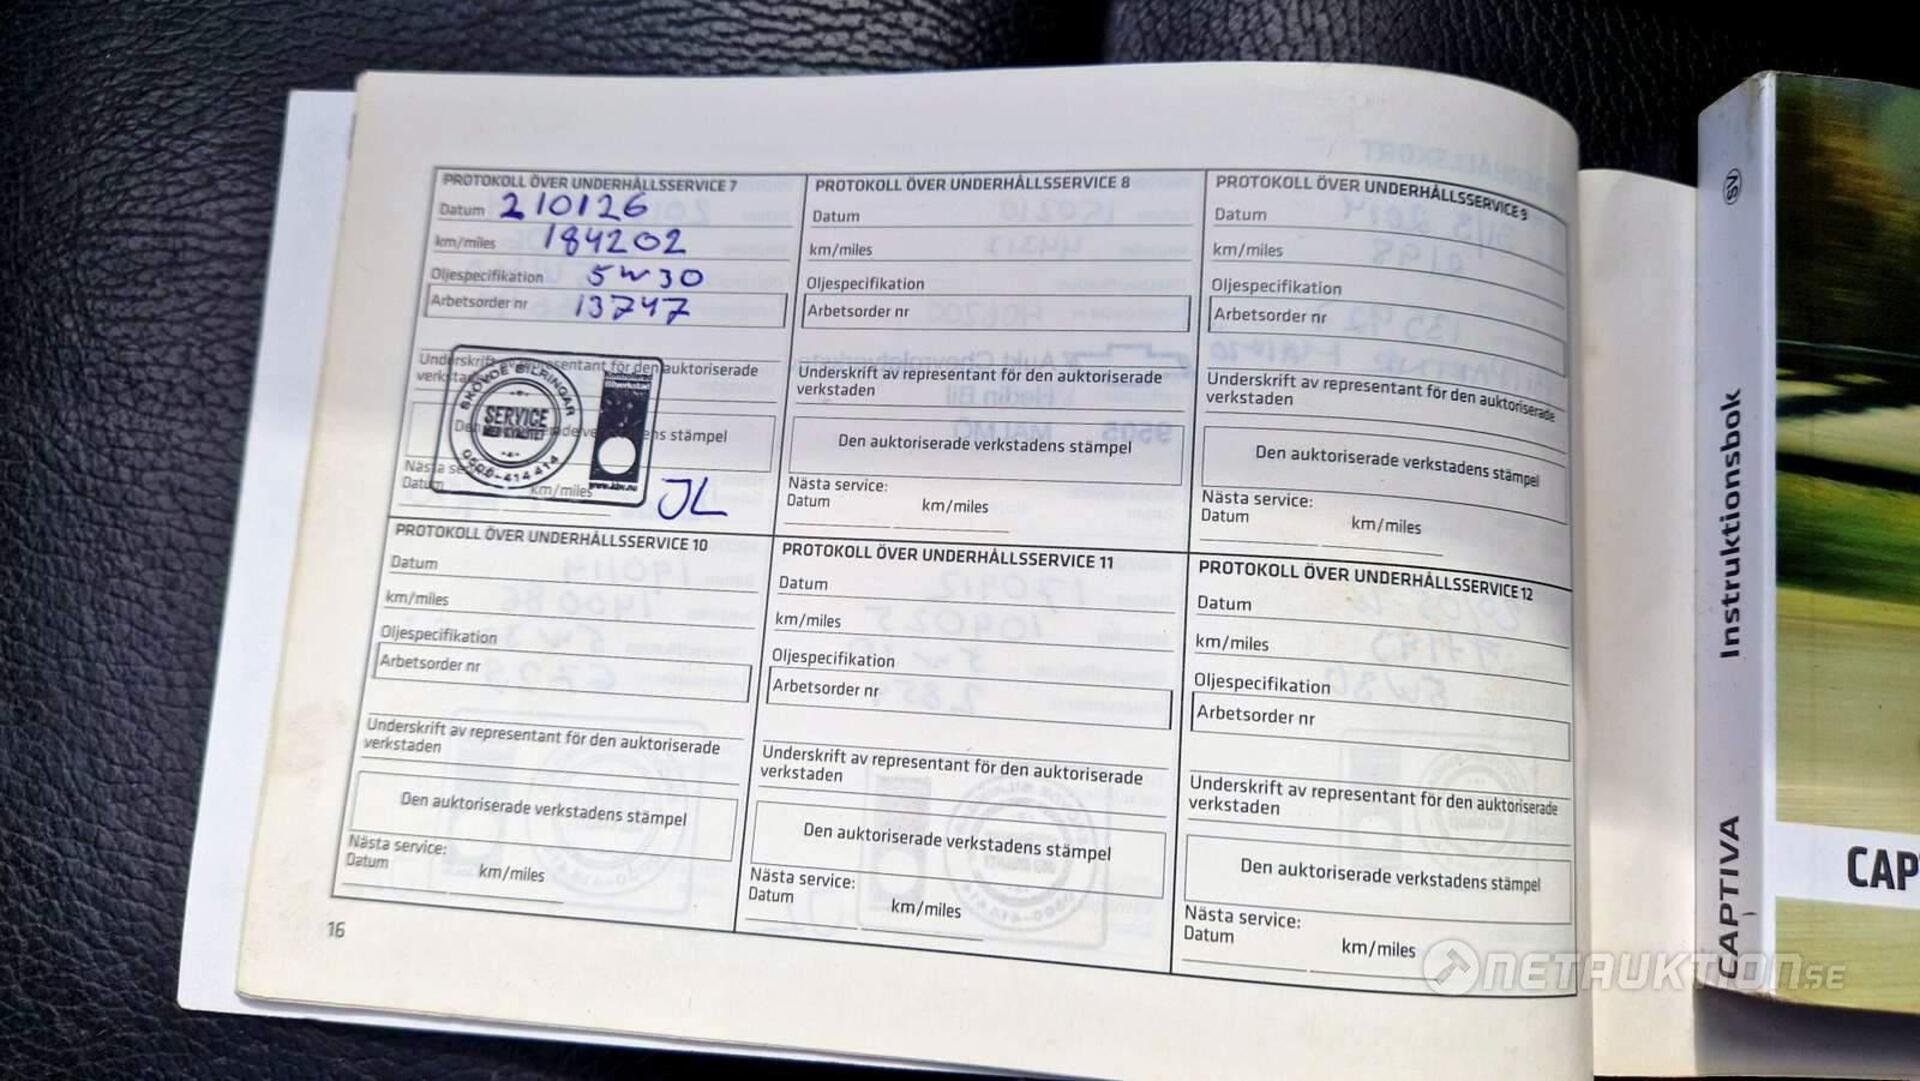 PROTOKOLL ÖVER UNDERHÅLLSSERVICE 7
Datum 210126
km/miles 184202
Oljespecifikation 5W30
Arbetsorder nr 13747
Underskrift av representant för den auktoriserade
verkstaden
SKÖVDE BILRINGAR
SERVICE
0500-414 414
Kontrollerad
Bilverkstad
www.kbv.nu
Den auktoriserade verkstadens stämpel
Nästa service:
Datum km/miles
JL
PROTOKOLL ÖVER UNDERHÅLLSSERVICE 8
Datum
km/miles
Oljespecifikation
Arbetsorder nr
Underskrift av representant för den auktoriserade
verkstaden
Den auktoriserade verkstadens stämpel
Nästa service:
Datum km/miles
PROTOKOLL ÖVER UNDERHÅLLSSERVICE 9
Datum
km/miles
Oljespecifikation
Arbetsorder nr
Underskrift av representant för den auktoriserade
verkstaden
Den auktoriserade verkstadens stämpel
Nästa service:
Datum km/miles
PROTOKOLL ÖVER UNDERHÅLLSSERVICE 10
Datum
km/miles
Oljespecifikation
Arbetsorder nr
Underskrift av representant för den auktoriserade
verkstaden
Den auktoriserade verkstadens stämpel
Nästa service:
Datum km/miles
PROTOKOLL ÖVER UNDERHÅLLSSERVICE 11
Datum
km/miles
Oljespecifikation
Arbetsorder nr
Underskrift av representant för den auktoriserade
verkstaden
Den auktoriserade verkstadens stämpel
Nästa service:
Datum km/miles
PROTOKOLL ÖVER UNDERHÅLLSSERVICE 12
Datum
km/miles
Oljespecifikation
Arbetsorder nr
Underskrift av representant för den auktoriserade
verkstaden
Den auktoriserade verkstadens stämpel
Nästa service:
Datum km/miles
16
SV
CAPTIVA Instruktionsbok
CAP
NETAUKTION.SE